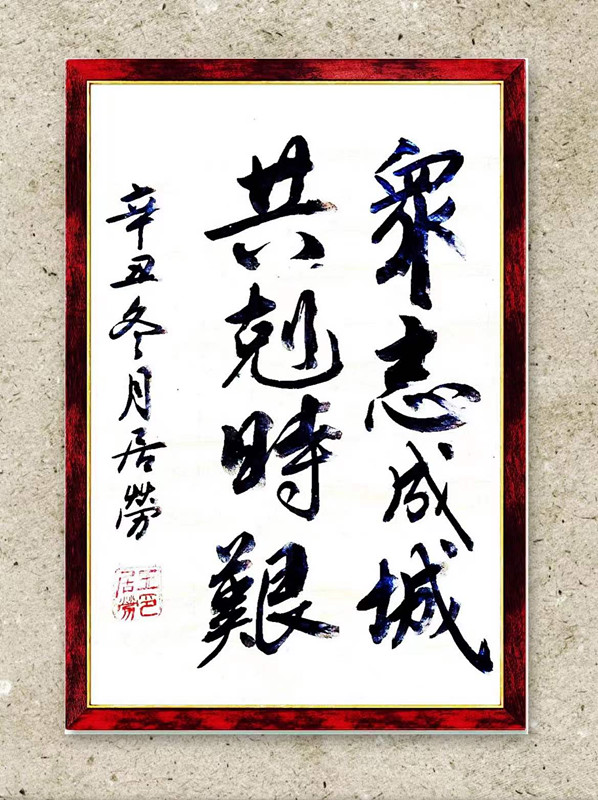 眾志成城
共剋時艱
辛丑冬月居勞
王印居勞